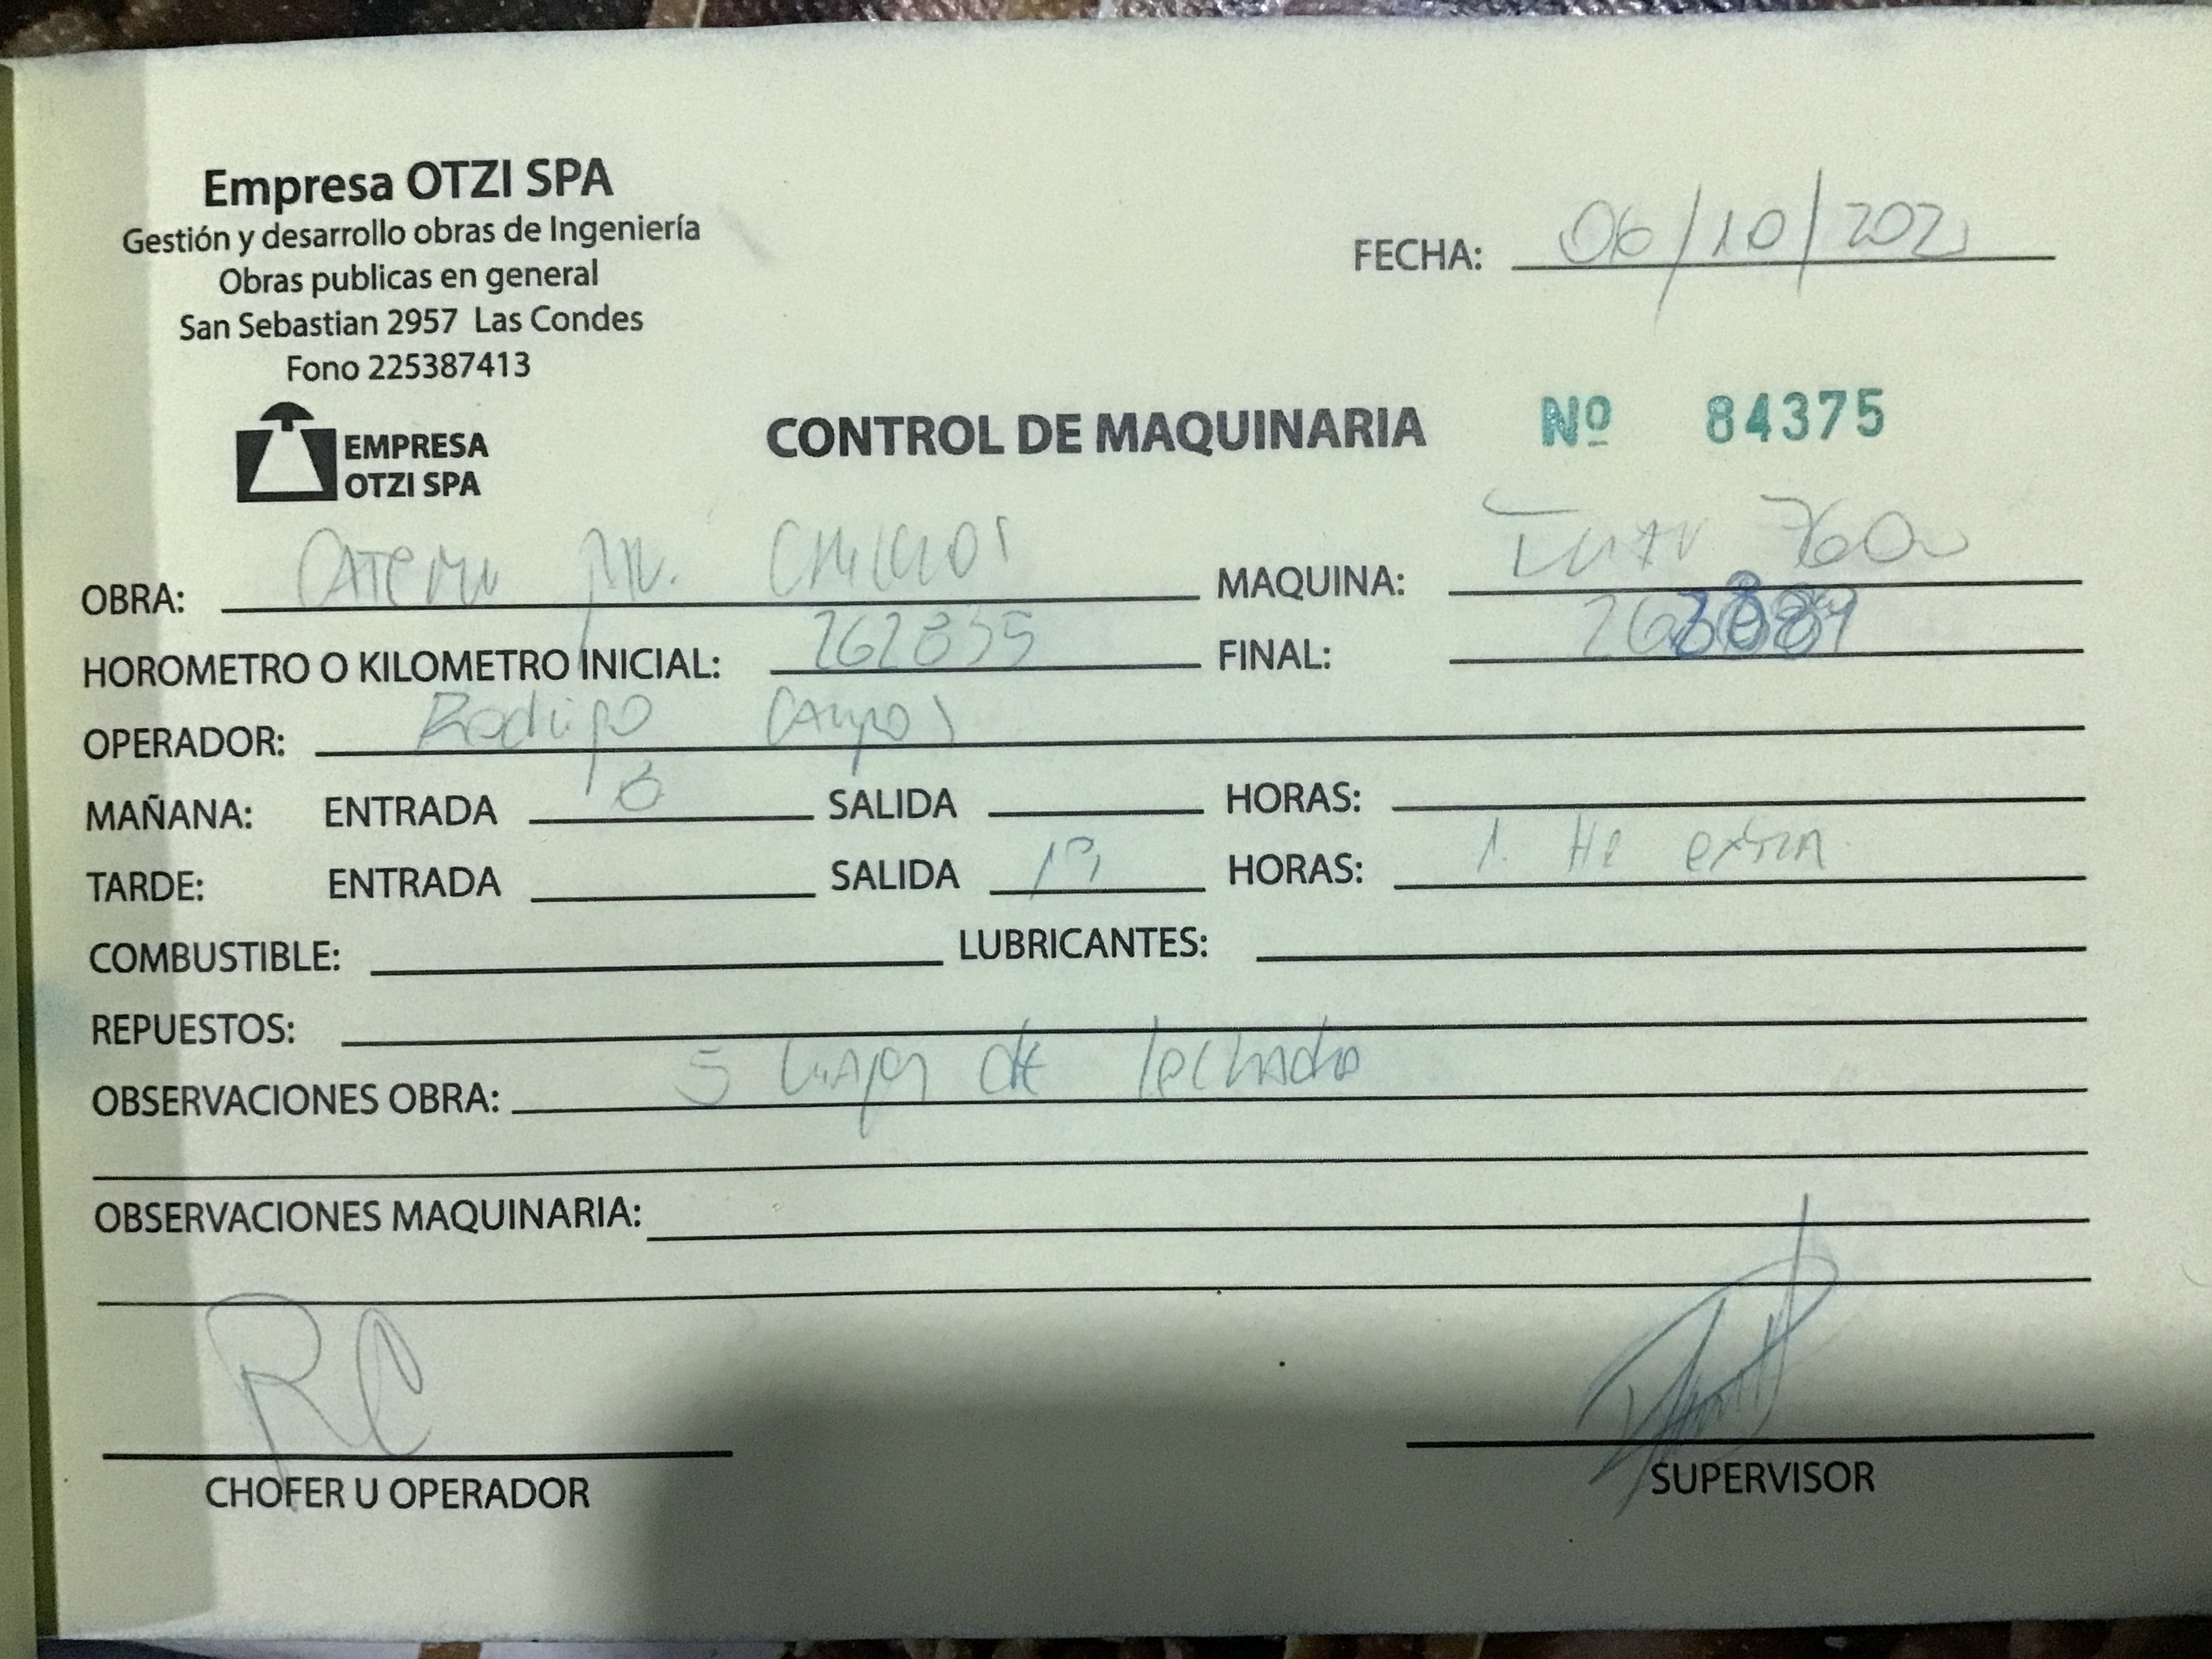 Empresa OTZI SPA
Gestión y desarrollo obras de Ingeniería
Obras publicas en general
San Sebastian 2957 Las Condes
Fono 225387413
FECHA: 06/10/2021
EMPRESA
OTZI SPA
CONTROL DE MAQUINARIA Nº 84375
OBRA: MAQUINA:
HOROMETRO O KILOMETRO INICIAL: 262835 FINAL:
OPERADOR: Rodrigo Campos
MAÑANA: ENTRADA 8 SALIDA HORAS:
TARDE: ENTRADA SALIDA 19 HORAS: 1. Hr extra
COMBUSTIBLE: LUBRICANTES:
REPUESTOS:
OBSERVACIONES OBRA: 5 de
OBSERVACIONES MAQUINARIA:
RC
CHOFER U OPERADOR
SUPERVISOR